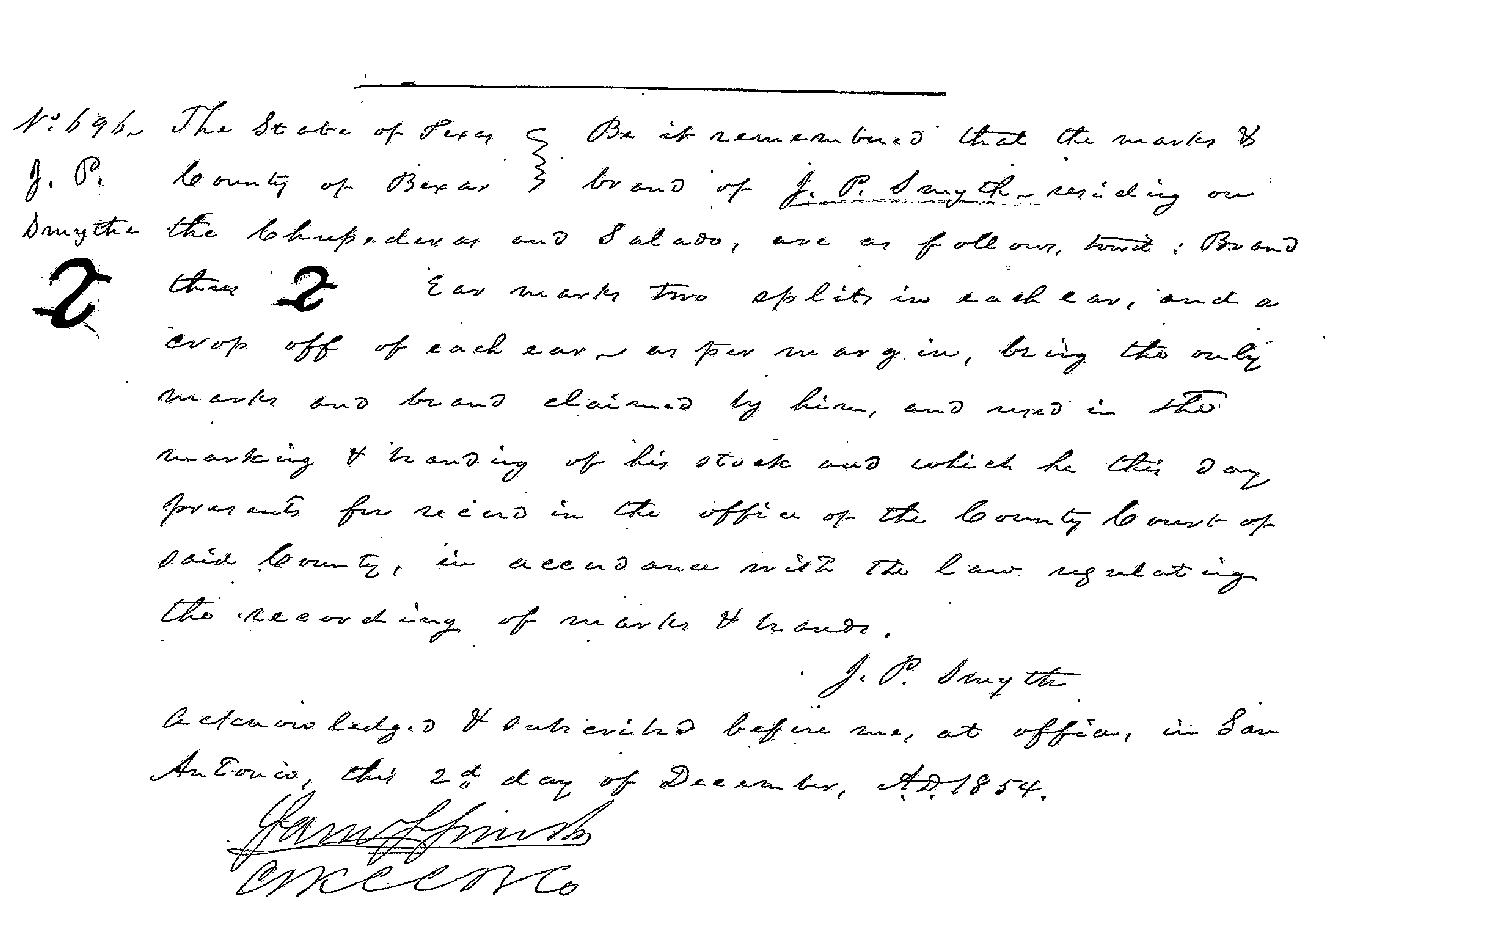 No. 696. The State of Texas } Be it remembered that the marks &
J. P. County of Bexar } brand of J. P. Smyth residing on
Smythe the Chupaderas and Salado, are as follows, towit: Brand
thus 2 Ear marks two splits in each ear, and a
crop off of each ear as per margin, being the only
marks and brand claimed by him, and used in the
marking & branding of his stock and which he this day
presents for record in the office of the County Court of
said County, in accordance with the law regulating
the recording of marks & brands.
J. P. Smyth
Acknowledged & subscribed before me, at office, in San
Antonio, this 2d day of December, A.D. 1854.
Sam S Smith